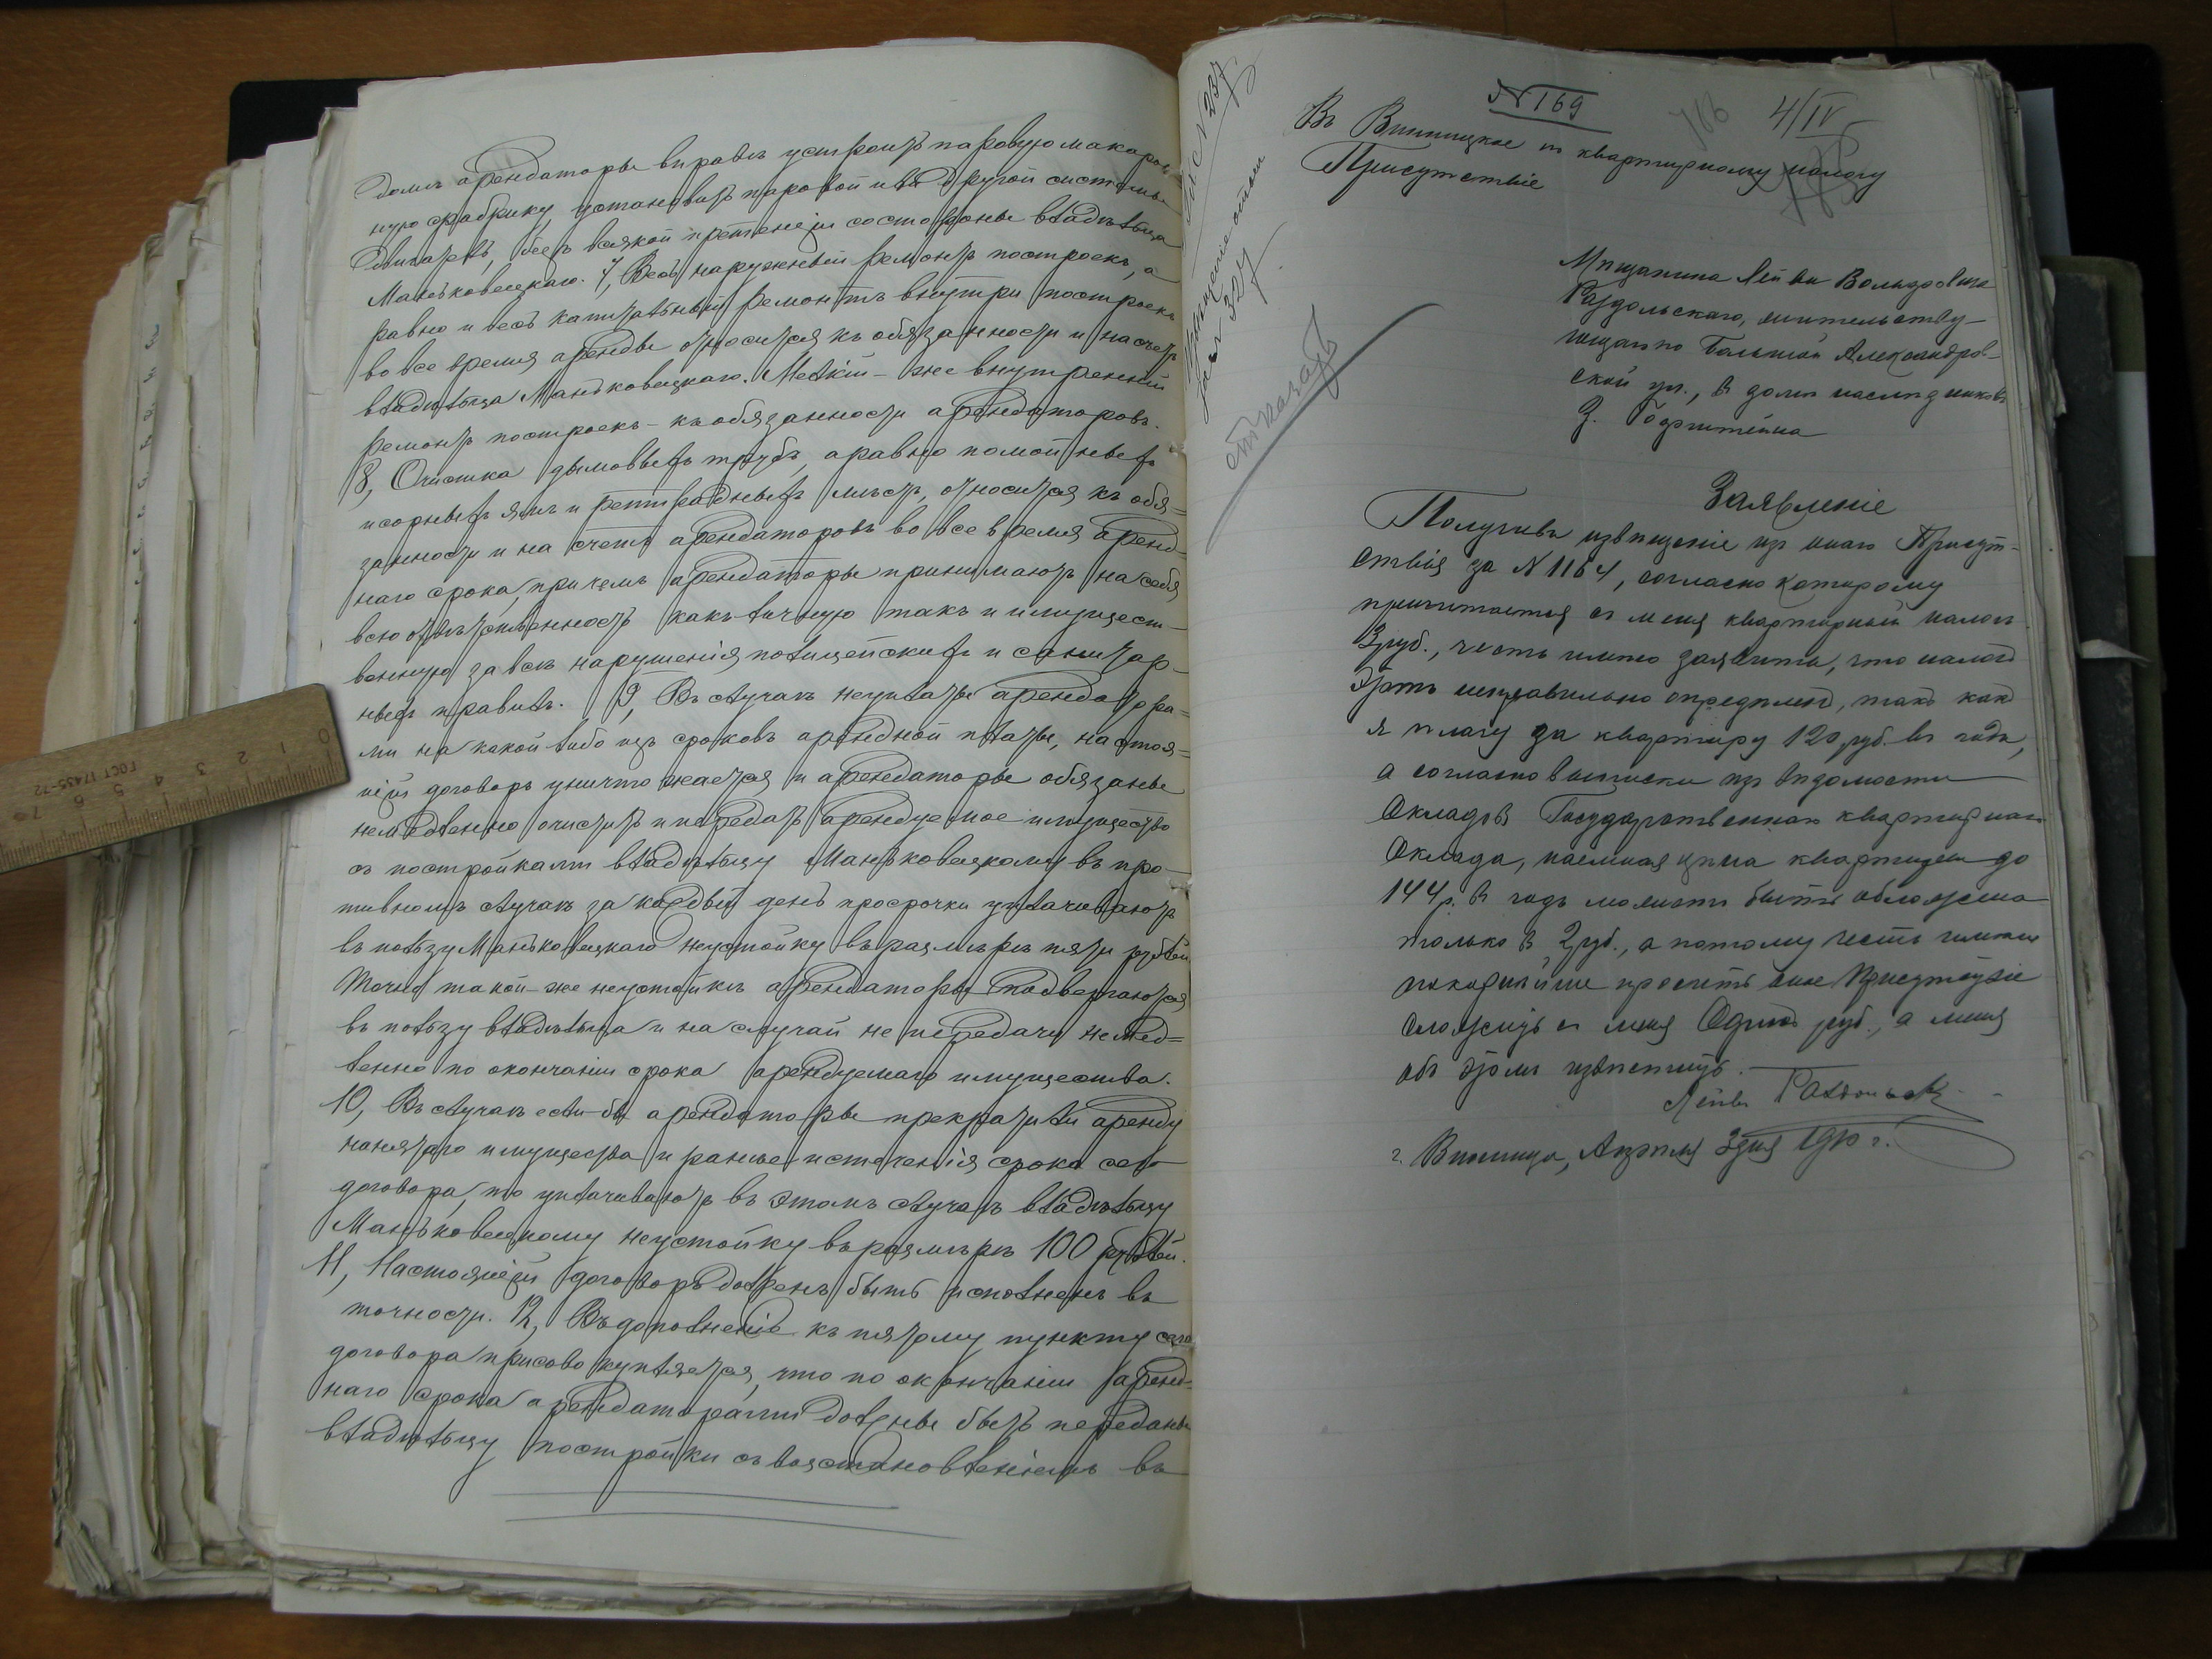 домъ арендаторы вправѣ устроить паровую макарон-
ную фабрику, установить паровой или другой системы
двигатель, безъ всякой претензіи со стороны владѣльца
Маньковецкаго. 7, Весь наружный ремонтъ построекъ, а
равно и весь капитальный ремонтъ внутри построекъ
во все время аренды относится къ обязанности и на счетъ
владѣльца Маньковецкаго. Мелкій-же внутренній
ремонтъ построекъ - къ обязанности арендаторовъ.
8, Очистка дымовыхъ трубъ, а равно помойныхъ
и сорныхъ ямъ и ретирадныхъ мѣстъ, относится къ обя=
занности и на счетъ арендаторовъ во все время аренд-
наго срока, при чемъ арендаторы принимаютъ на себя
всю отвѣтственность какъ личную такъ и имущест-
венную за всѣ нарушенія полицейскихъ и санитар-
ныхъ правилъ. 9, Въ случаѣ неуплаты арендатора=
ми на какой либо изъ сроковъ арендной платы, настоя=
щій договоръ уничтожается и арендаторы обязаны
немедленно очистить и передать арендуемое имущество
съ постройками владѣльцу Маньковецкому въ про-
тивномъ случаѣ за каждый день просрочки уплачиваютъ
въ пользу Маньковецкаго неустойку въ размѣрѣ пяти рублей
Точно такой-же неустойкѣ арендаторы подвергаются
въ пользу владѣльца и на случай не передачи немед=
ленно по окончаніи срока арендуемаго имущества.
10, Въ случаѣ если-бы арендаторы прекратили аренду
нанятаго имущества и ранѣе истеченія срока сего
договора, то уплачиваютъ въ этомъ случаѣ владѣльцу
Маньковецкому неустойку въ размѣрѣ 100 рублей.
11, Настоящій договоръ долженъ быть исполненъ въ
точности. 12, Въ дополненіе къ пятому пункту сего
договора присовокупляется, что по окончаніи аренд-
наго срока арендаторами должны быть переданы
владѣльцу постройки съ возстановленіемъ въ
№ 169
766
4/IV
Въ Винницкое по квартирному налогу
Присутствіе
Мѣщанина Лейвы Вольфовича
Раздольскаго, жительству-
ющаго по Большой Александров-
ской ул., въ домѣ наслѣдниковъ
З. Горштейна
Заявленіе
Получивъ извѣщеніе изъ онаго Присут-
ствія за № 1164, согласно которому
причитается съ меня квартирный налогъ
3 руб., честь имѣю заявить, что налогъ
этотъ неправильно опредѣленъ, такъ какъ
я плачу за квартиру 120 руб. въ годъ,
а согласно выписки изъ вѣдомости
Окладовъ Государственнаго квартирнаго
Оклада, наемная цѣна квартиры до
144 р. въ годъ можетъ быть обложена
только въ 2 руб., а потому честь имѣю
покорнѣйше просить оное Присутствіе
сложить съ меня Одинъ руб., а меня
объ этомъ извѣстить.
Лейва Раздольскій
г. Винница, Апрѣля 3 дня 1910 г.
отказать